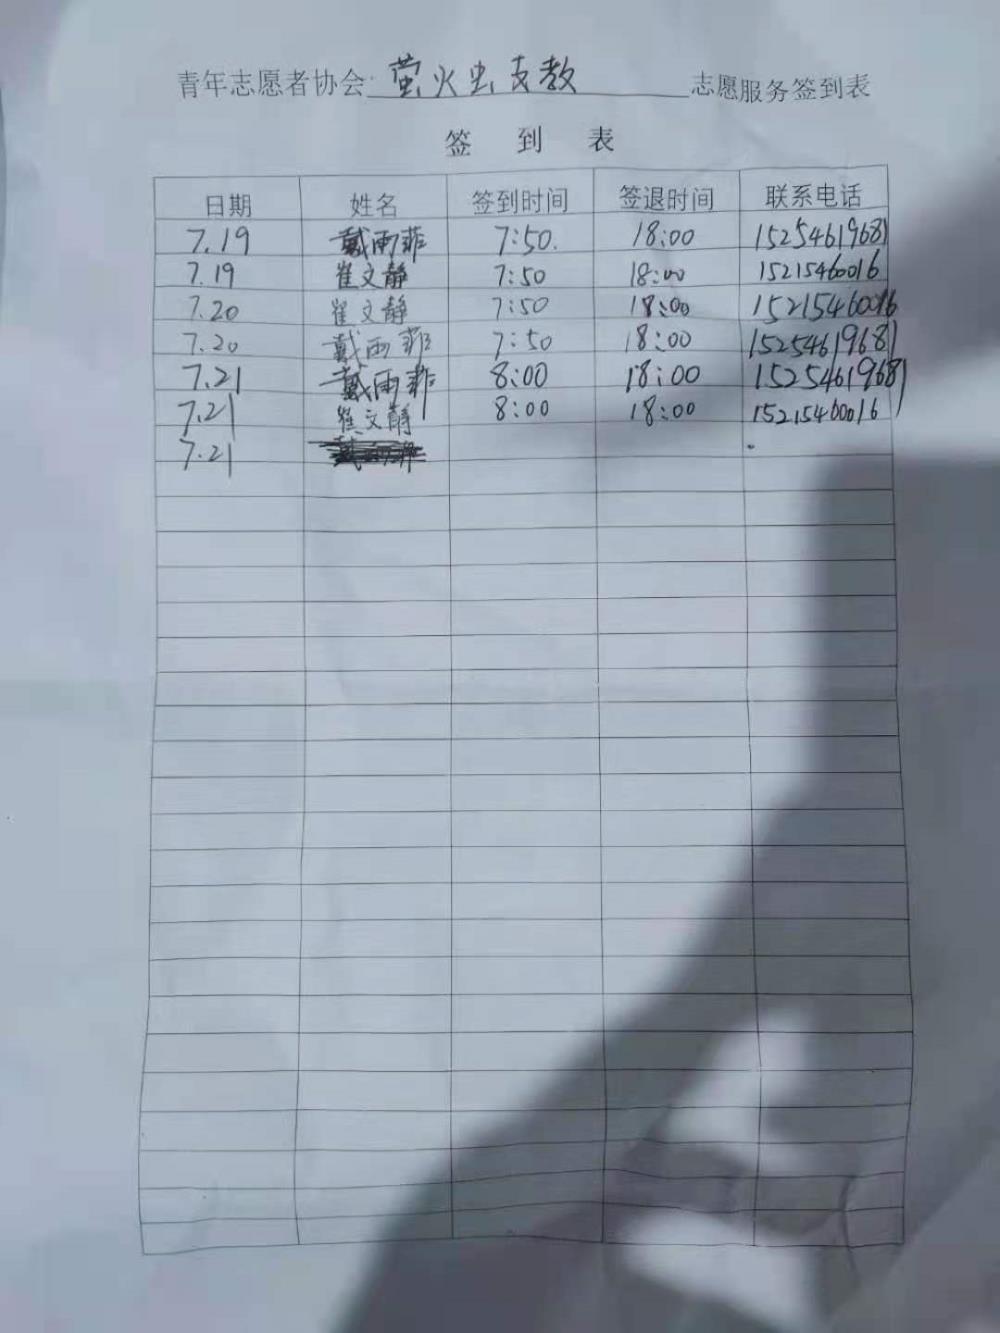 青年志愿者协会 萤火虫支教 志愿服务签到表
签 到 表
日期 姓名 签到时间 签退时间 联系电话
7.19 戴雨菲 7:50. 18:00 15254619681
7.19 崔文静 7:50 18:00 15215460016
7.20 崔文静 7:50 18:00 15215460016
7.20 戴雨菲 7:50 18:00 15254619681
7.21 戴雨菲 8:00 18:00 15254619681
7.21 崔文静 8:00 18:00 15215460016
7.21